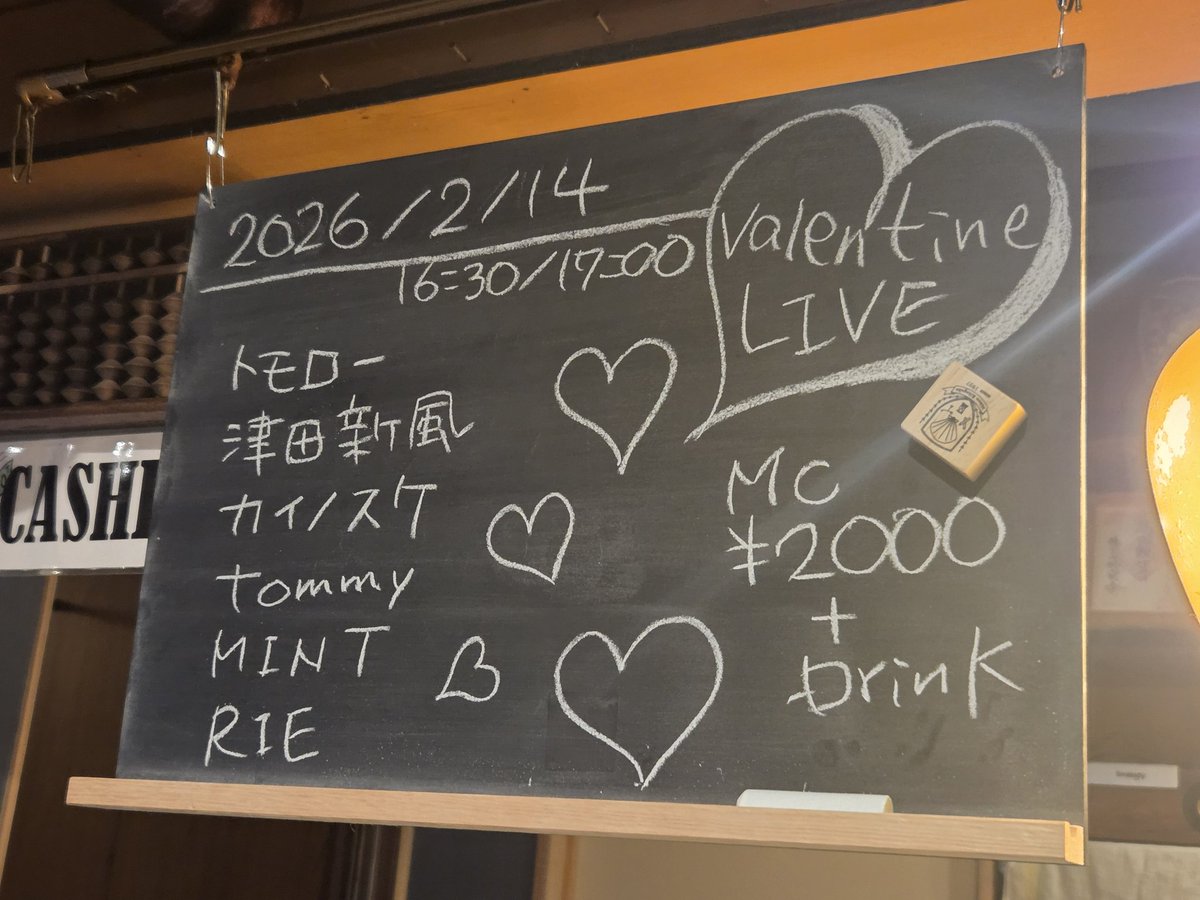 2026/2/14
16:30/17:00
Valentine
LIVE
トモロー
津田新風
カイノスケ
Tommy
MINT
RIE
MC
¥2000
+
Drink
CASH